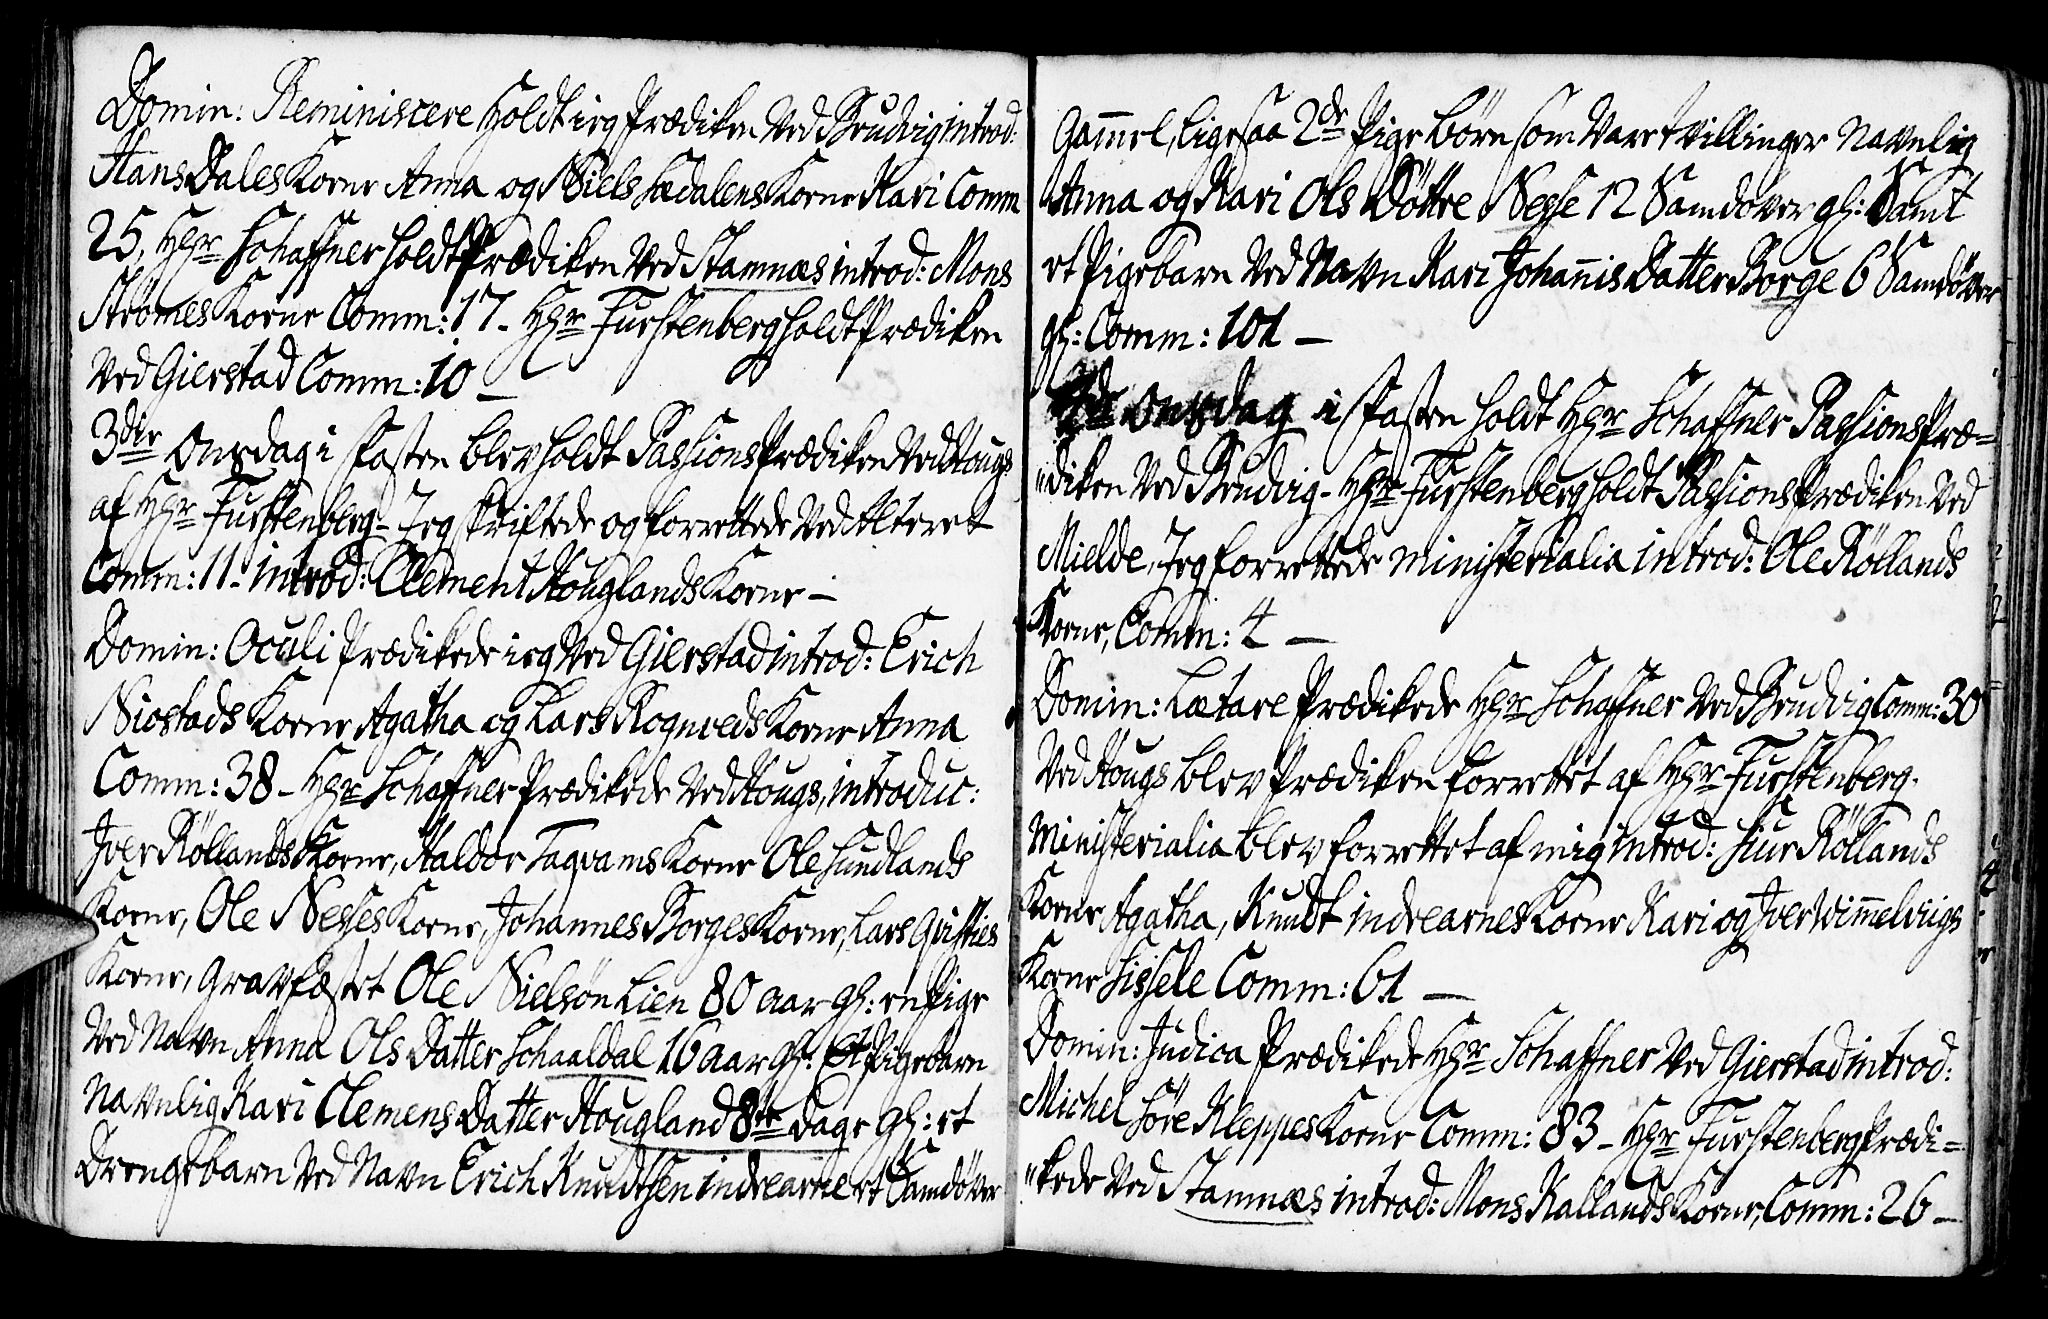 Domin: Reminiscere Holdt ieg Prædiken Ved Brudvig introd:
Hans Dales Kone Anna og Niels Sædalens Kone Kari Comm
25, Hgr Schaffner holdt Prædiken Ved Stamnæs introd: Mons
Strømes Kone Comm: 17 - Hgr Furstenberg holdt Prædiken
Ved Gierstad Comm: 10 -
3die Onsdag i Fasten blev holdt Passions Prædiken Ved Hougs
af Hgr Furstenberg - Jeg skriftede og forrettede Ved Alteret
Comm: 11 - introd: Clement Houglands Kone -
Domin: Oculi Prædikede ieg Ved Gierstad introd: Erich
Niostads Kone Agatha og Lars Rognveds Kone Anna
Comm: 38 - Hgr Schaffner Prædikede Ved Hougs, introduc:
Jver Röllands Kone, Haldor Taqvams Kone Ole Sundlands
Kone, Ole Nesses Kone, Johannes Borges Kone, Lars Qvisties
Kone, Gravfæstet Ole Nielsøn Lien 80 aar gl: en Pige
Ved Navn Anna Ols Datter Schaaldal 16 aar gl: Et Pigebarn
Navnlig Kari Clemens Datter Hougland 8te Dage gl: et
Drengebarn Ved Navn Erich Knudtsen indrearne et Samdøver
Gam̄el, ligesaa 2de Pige børn som Vare tvillinger Navnlig
Anna og Kari Ols Döttre Nesse 12 Samdøver gl: Samt
et Pigebarn Ved Navn Kari Johan̄is Datter Borge 6 Samdøver
gl: Comm: 101 -
Onsdag i Fasten holdt Hgr Schaffner Passions Præ=
"diken Ved Brudvig - Hgr Furstenberg holdt Passions Prædiken Ved
Mielde, Jeg forrettede Ministerialia introd: Ole Röllands
Kone, Comm: 4 -
Domin: Lætare Prædikede Hgr Schaffner Ved Brudvig Comm: 30
Ved Hougs blev Prædiken forrettet af Hgr Furstenberg.
Ministerialia blev forrettet af mig introd: Siur Röllands
Kone Agatha, Knudt indrearnes Kone Kari og Jver Wim̄elviigs
Kone Sissele Comm: 61 -
Domin: Judica Prædikede Hgr Schaffner Ved Gierstad introd:
Michel Söre Kleppes Kone Comm: 83 - Hgr Furstenberg Prædi=
"kede Ved Stamnæs introd: Mons Kallands Kone, Comm: 26 -